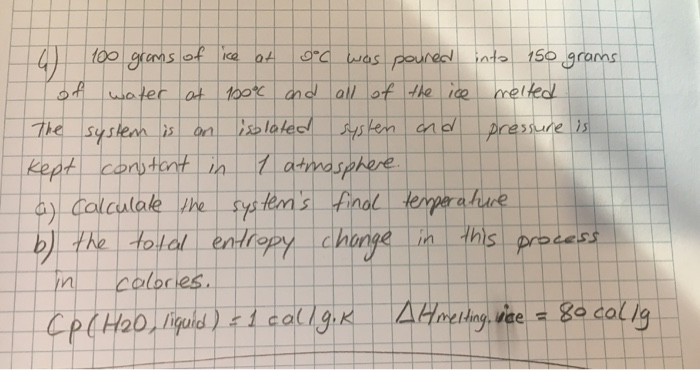 4) 100 grams of ice at 0°C was poured into 150 grams
of water at 100°C and all of the ice melted
The system is an isolated system and pressure is
kept constant in 1 atmosphere.
a) Calculate the system's final temperature
b) the total entropy change in this process
in calories.
Cp(H2O, liquid) = 1 cal/g.K ΔHmelting, ice = 80 cal/g